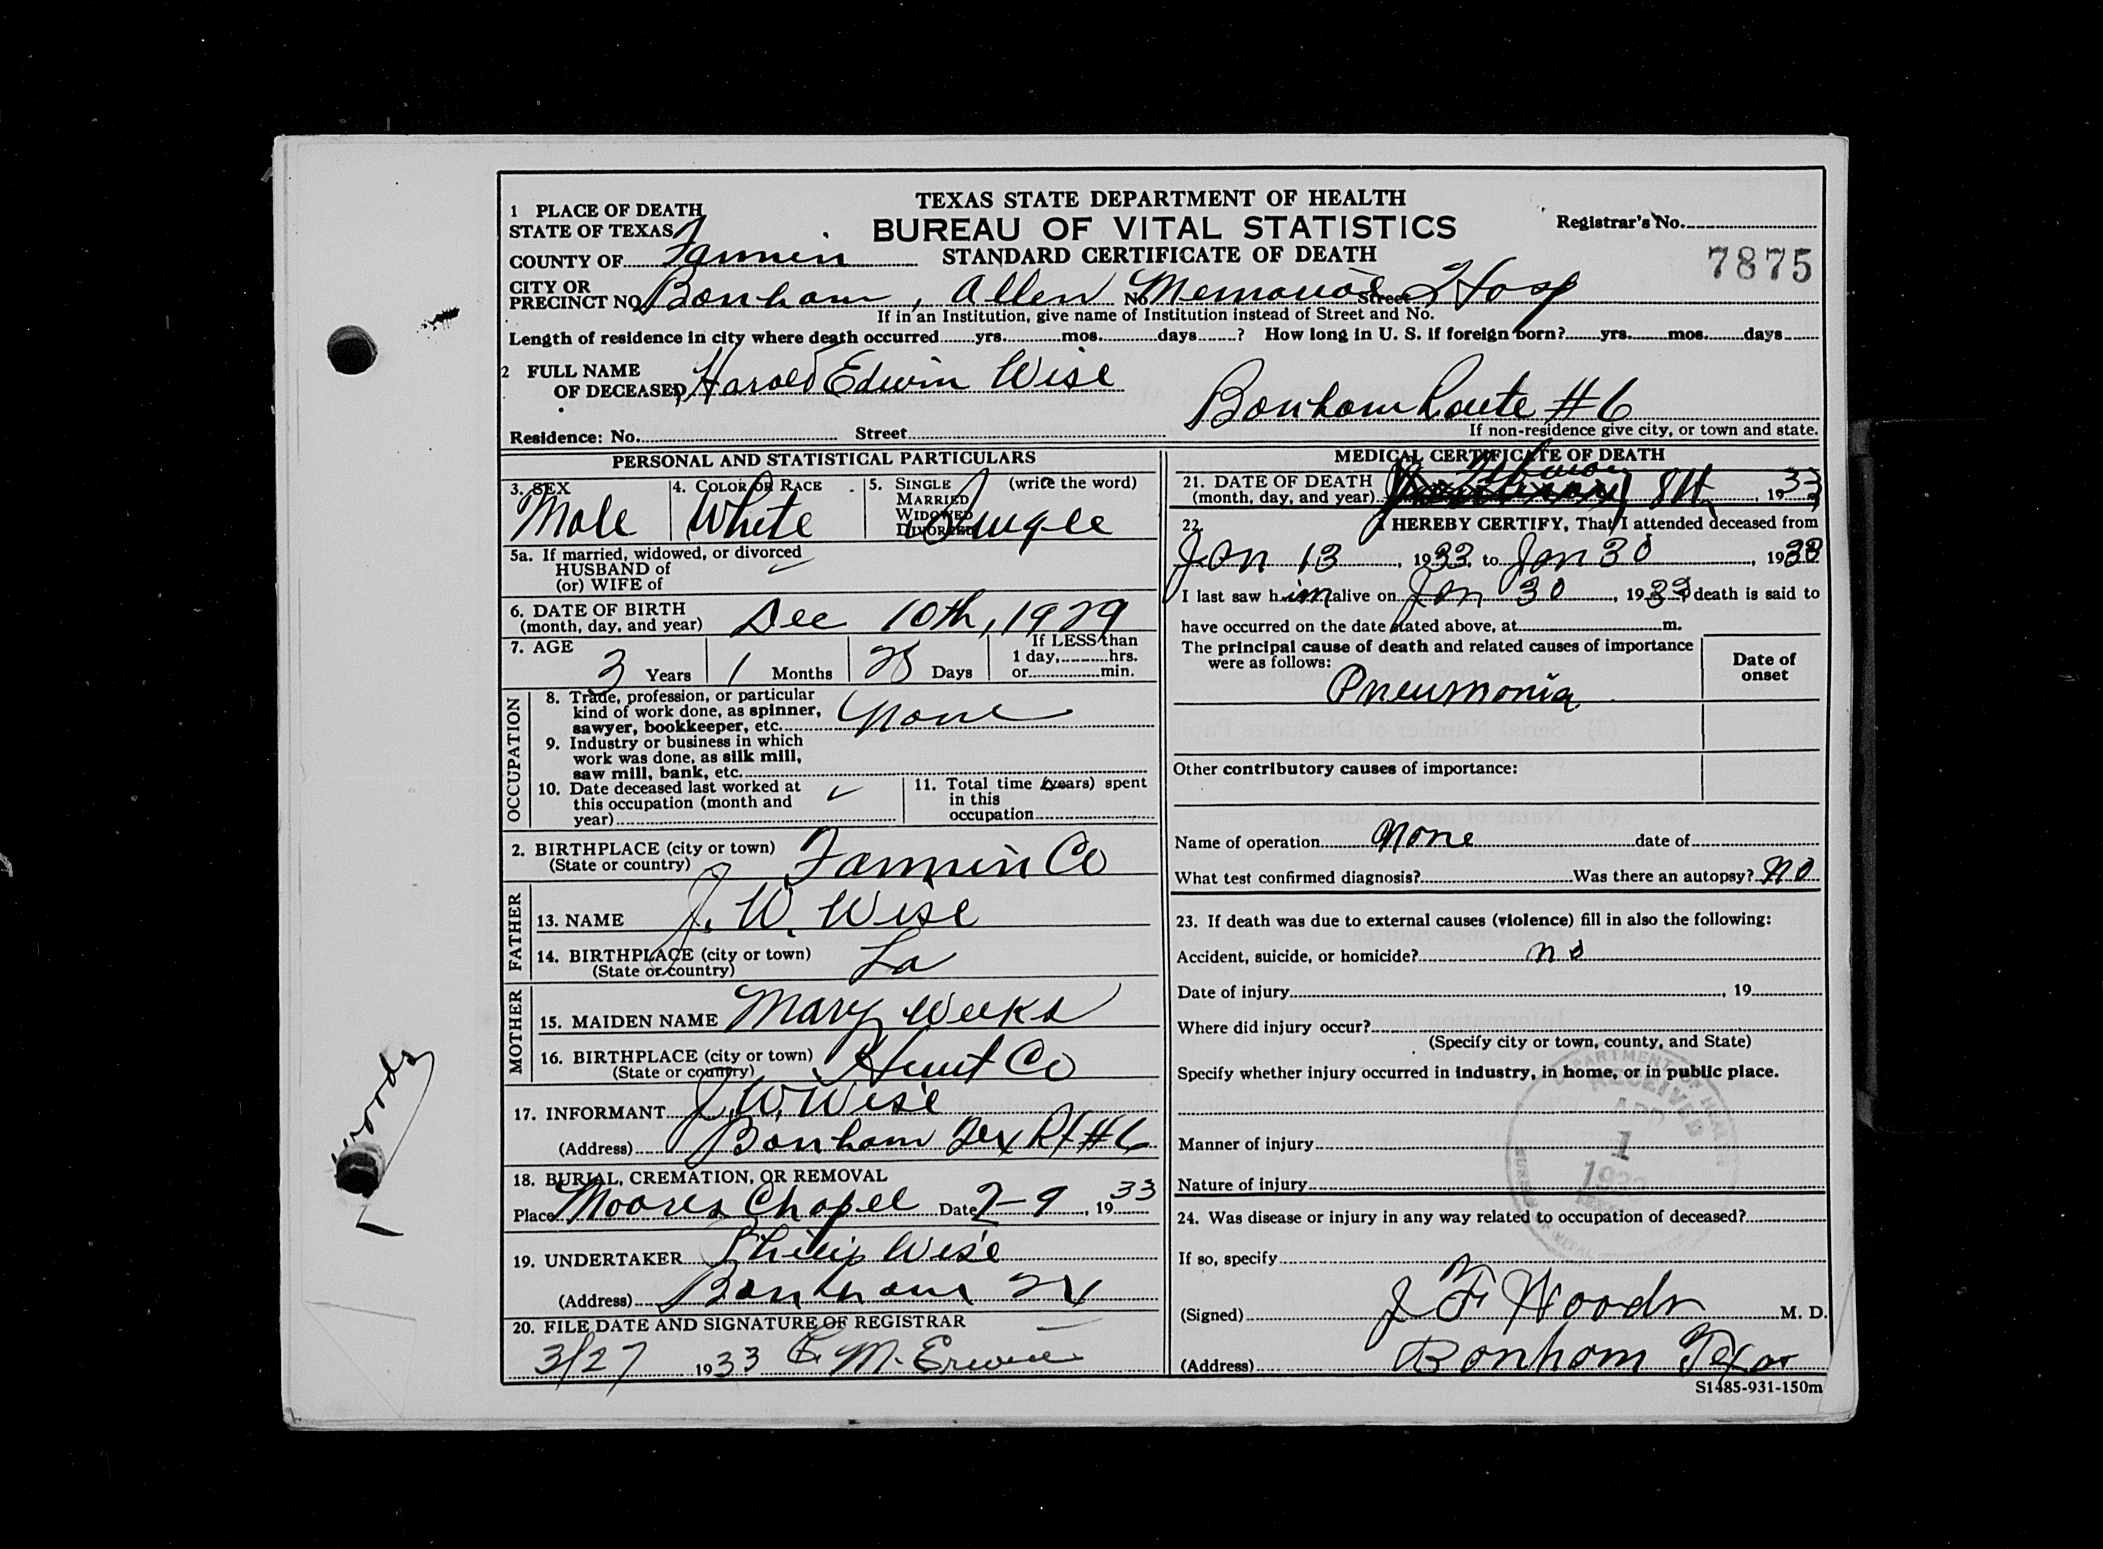 TEXAS STATE DEPARTMENT OF HEALTH
BUREAU OF VITAL STATISTICS
STANDARD CERTIFICATE OF DEATH
Registrar's No.
7875
1 PLACE OF DEATH
STATE OF TEXAS
COUNTY OF Fannin
CITY OR PRECINCT NO Bonham, Allen No Memorial Street Hosp
If in an Institution, give name of Institution instead of Street and No.
Length of residence in city where death occurred yrs. mos. days ? How long in U. S. if foreign born? yrs. mos. days
2 FULL NAME OF DECEASED Harold Edwin Wise
Bonham Route #6
Residence: No. Street
If non-residence give city, or town and state.
PERSONAL AND STATISTICAL PARTICULARS
3. SEX Male
4. COLOR OR RACE White
5. SINGLE MARRIED WIDOWED DIVORCED (write the word) Single
5a. If married, widowed, or divorced
HUSBAND of
(or) WIFE of
6. DATE OF BIRTH (month, day, and year) Dec 10th, 1929
7. AGE 3 Years 1 Months 28 Days If LESS than 1 day, hrs. or min.
OCCUPATION
8. Trade, profession, or particular kind of work done, as spinner, sawyer, bookkeeper, etc. None
9. Industry or business in which work was done, as silk mill, saw mill, bank, etc.
10. Date deceased last worked at this occupation (month and year)
11. Total time (years) spent in this occupation
2. BIRTHPLACE (city or town) (State or country) Fannin Co
FATHER
13. NAME J. W. Wise
14. BIRTHPLACE (city or town) (State or country) La
MOTHER
15. MAIDEN NAME Mary Weeks
16. BIRTHPLACE (city or town) (State or country) Hunt Co
17. INFORMANT J. W. Wise
(Address) Bonham Tex Rt #6
18. BURIAL, CREMATION, OR REMOVAL
Place Moores Chapel Date 2-9, 1933
19. UNDERTAKER Philip Wise
(Address) Bonham Tx
20. FILE DATE AND SIGNATURE OF REGISTRAR
3/27 1933 M. Erwin
MEDICAL CERTIFICATE OF DEATH
21. DATE OF DEATH (month, day, and year) February 8th, 1933
22. I HEREBY CERTIFY, That I attended deceased from
Jan 13, 1933, to Jan 30, 1933
I last saw him alive on Jan 30, 1933, death is said to
have occurred on the date stated above, at m.
The principal cause of death and related causes of importance were as follows:
Date of onset
Pneumonia
Other contributory causes of importance:
Name of operation None date of
What test confirmed diagnosis? Was there an autopsy? No
23. If death was due to external causes (violence) fill in also the following:
Accident, suicide, or homicide? No
Date of injury , 19
Where did injury occur?
(Specify city or town, county, and State)
Specify whether injury occurred in industry, in home, or in public place.
Manner of injury
Nature of injury
24. Was disease or injury in any way related to occupation of deceased?
If so, specify
(Signed) J F Woods M. D.
(Address) Bonham Texas
S1485-931-150m
RECEIVED
APR
1
Woods